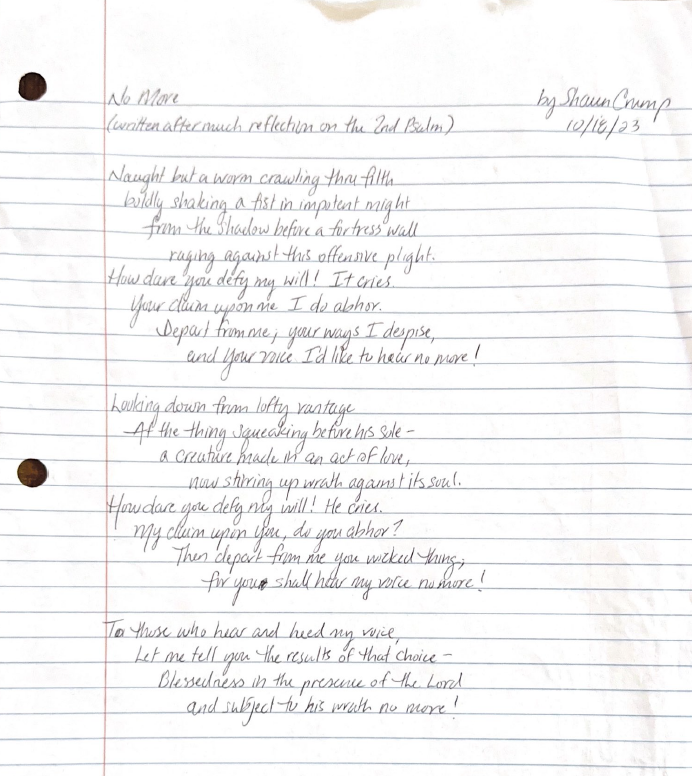 No More
by Shaun Crump
(written after much reflection on the 2nd Psalm)
10/18/23
Naught but a worm crawling thru filth
boldly shaking a fist in impotent might
from the shadow before a fortress wall
raging against this offensive plight.
How dare you defy my will! It cries.
Your claim upon me I do abhor.
Depart from me, your ways I despise,
and your voice I'd like to hear no more!
Looking down from lofty vantage
At the thing squeaking before his sole -
a creature made in an act of love,
now stirring up wrath against its soul.
How dare you defy my will! He cries.
My claim upon you, do you abhor?
Then depart from me you wicked thing;
for you shall hear my voice no more!
To those who hear and heed my voice,
Let me tell you the results of that choice -
Blessedness in the presence of the Lord
and subject to his wrath no more!